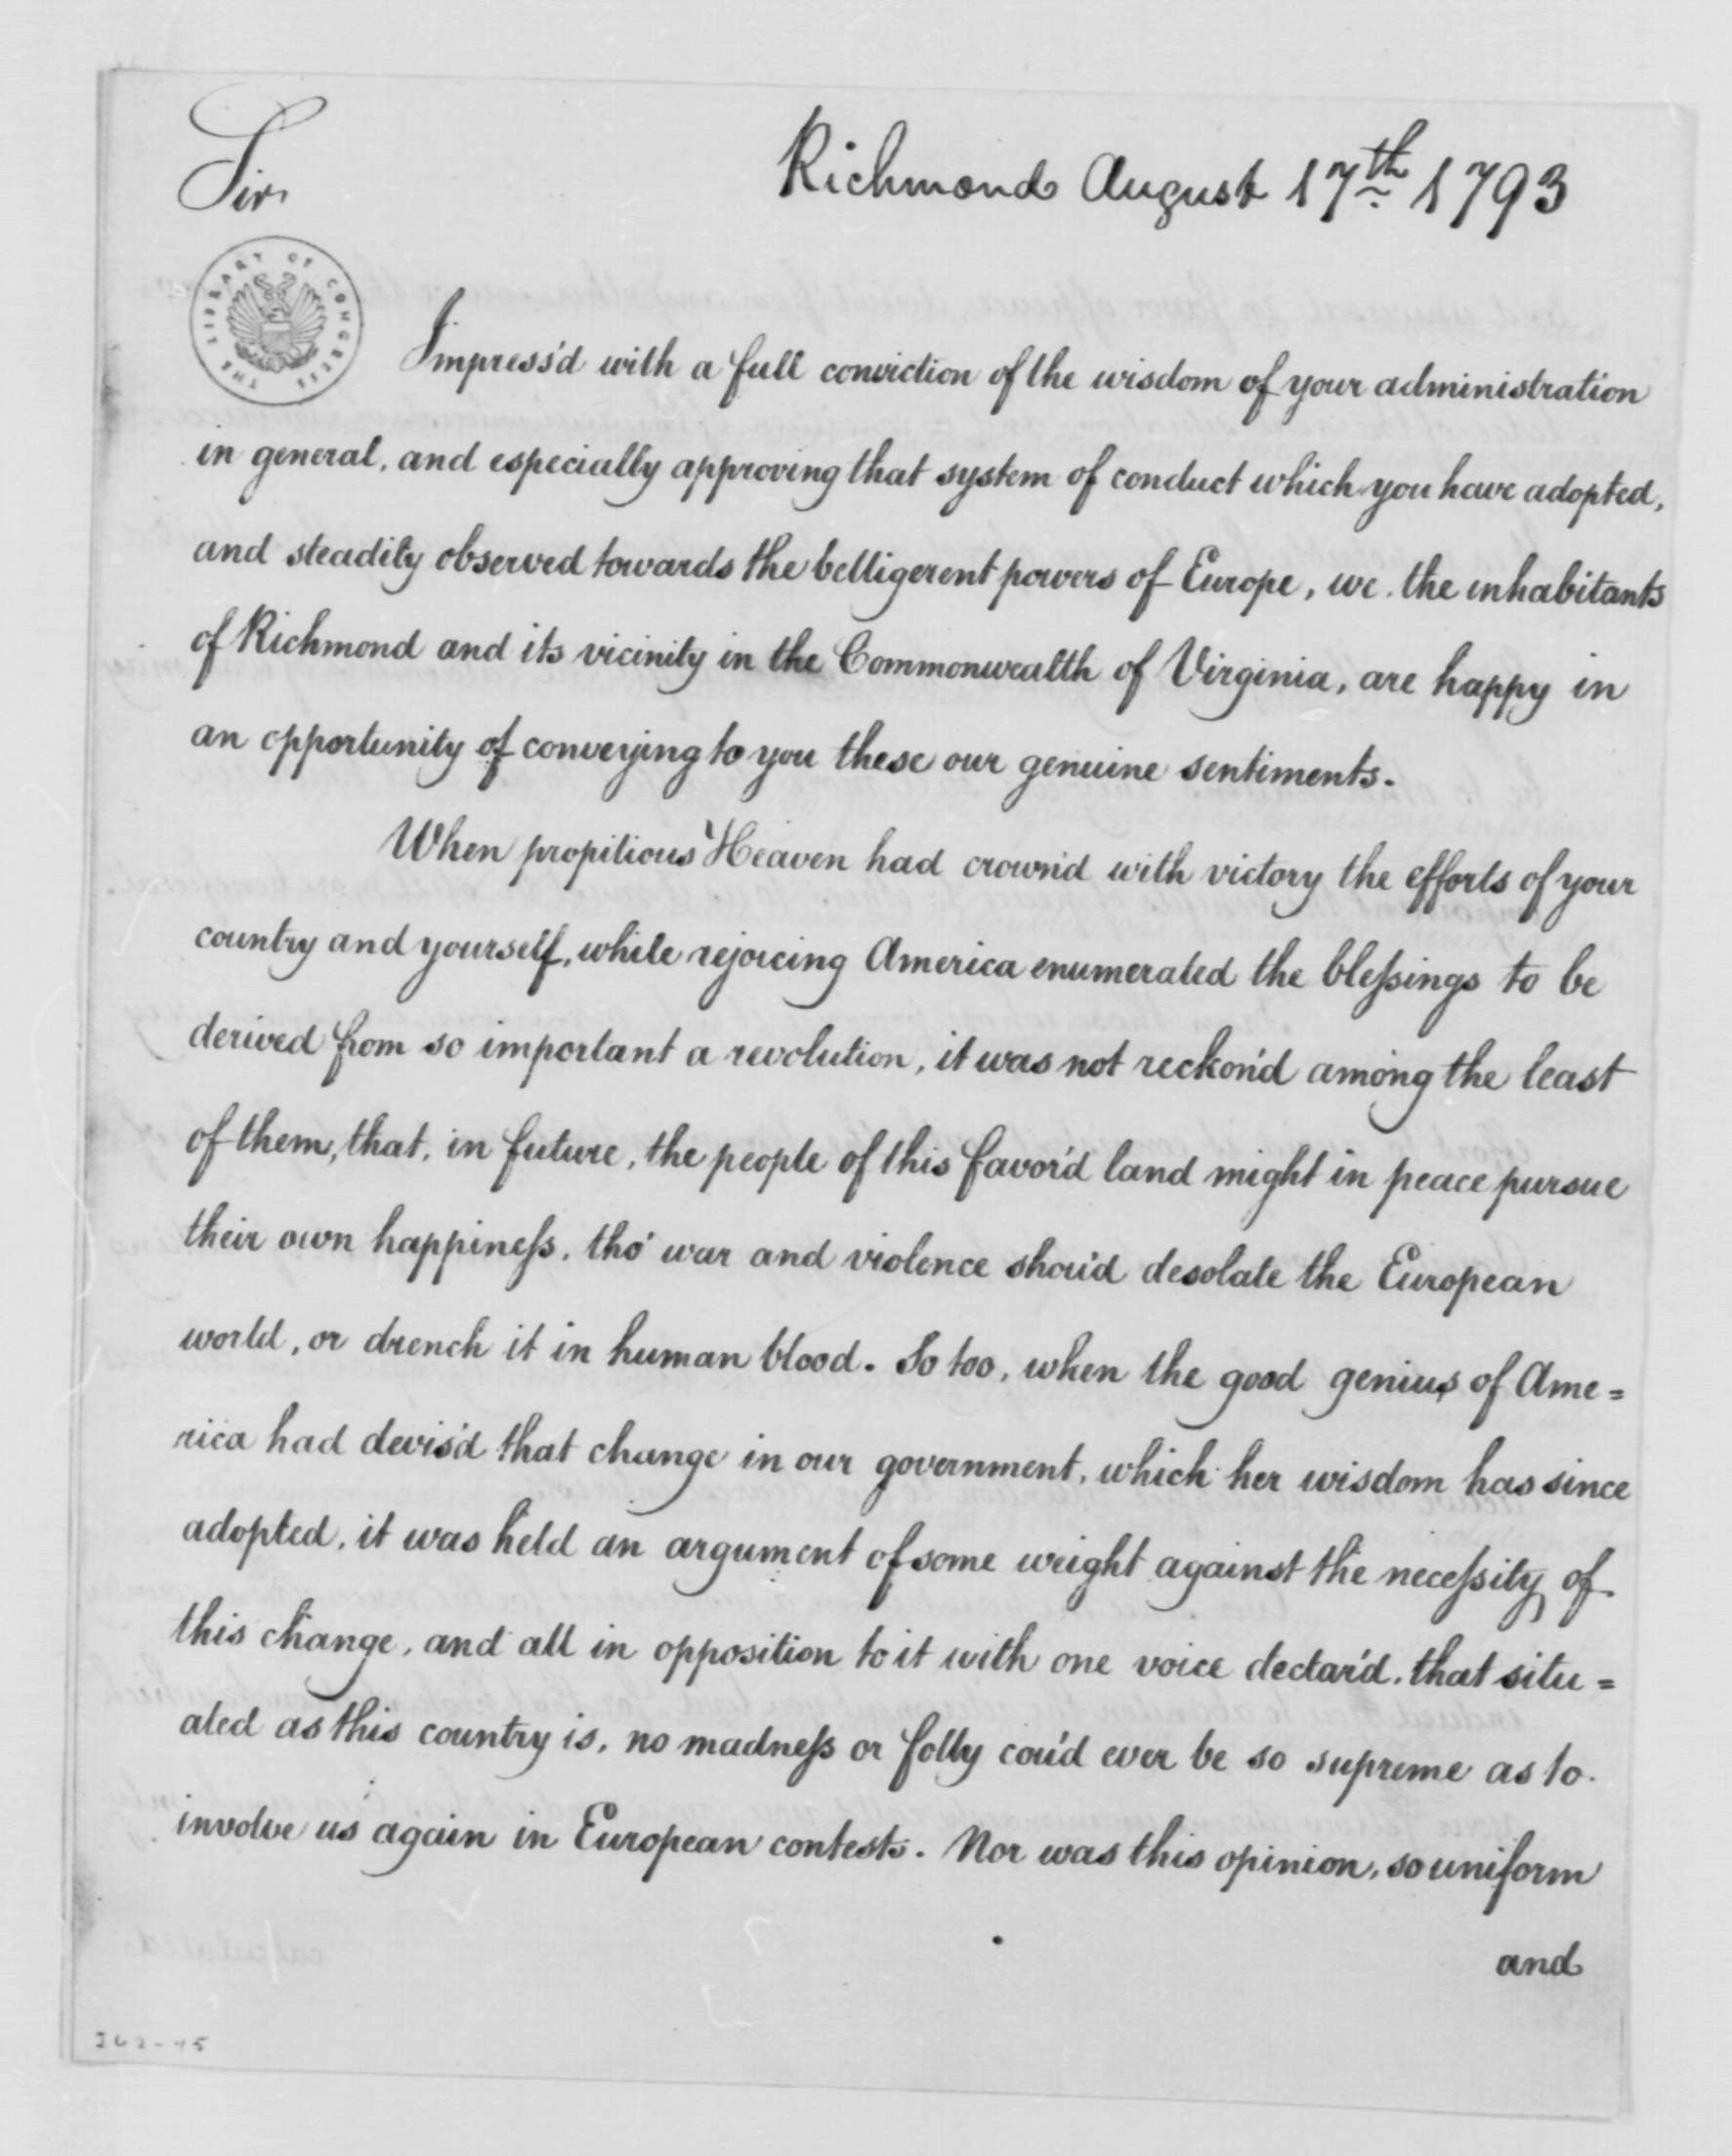 Sir
Richmond August 17th 1793
THE LIBRARY OF CONGRESS
Impress'd with a full conviction of the wisdom of your administration
in general, and especially approving that system of conduct which you have adopted,
and steadily observed towards the belligerent powers of Europe, we, the inhabitants
of Richmond and its vicinity in the Commonwealth of Virginia, are happy in
an opportunity of conveying to you these our genuine sentiments.
When propitious Heaven had crown'd with victory the efforts of your
country and yourself, while rejoicing America enumerated the bleſsings to be
derived from so important a revolution, it was not reckon'd among the least
of them, that, in future, the people of this favor'd land might in peace pursue
their own happineſs, tho' war and violence shou'd desolate the European
world, or drench it in human blood. So too, when the good genius of Ame=
rica had devis'd that change in our government, which her wisdom has since
adopted, it was held an argument of some weight against the neceſsity of
this change, and all in opposition to it with one voice declar'd, that situ=
ated as this country is, no madneſs or folly cou'd ever be so supreme as to
involve us again in European contests. Nor was this opinion, so uniform
and